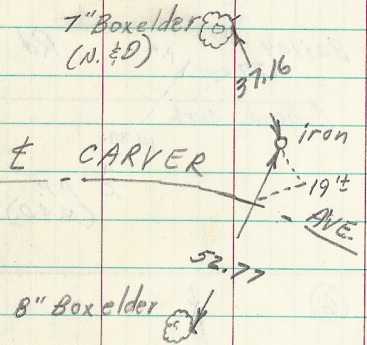 7" Boxelder
(N. & D)
37.16
iron
℄ CARVER
19'±
AVE.
52.77
8" Boxelder